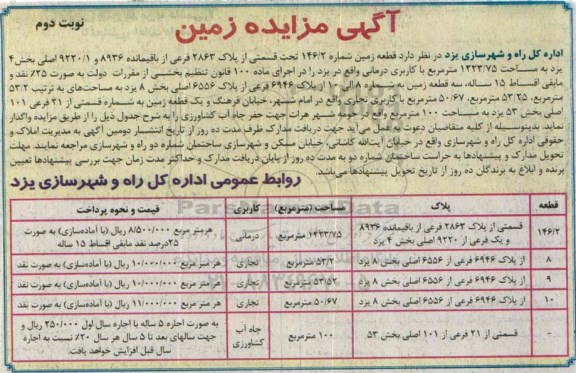 آگهی مزایده زمین
نوبت دوم
اداره کل راه و شهرسازی یزد در نظر دارد قطعه زمین شماره ۱۴۶/۲ تحت قسمتی از پلاک ۲۸۶۳ فرعی از باقیمانده ۸۹۳۶ و ۹۲۲۰/۱ اصلی بخش۴
یزد به مساحت ۱۲۳۳/۷۵ مترمربع با کاربری درمانی واقع در یزد را در اجرای ماده ۱۰۰ قانون تنظیم بخشی از مقررات دولت به صورت ۲۵٪ نقد و
مابقی اقساط ۱۵ ساله، سه قطعه زمین به شماره ۸ الی ۱۰ از پلاک ۶۹۴۶ فرعی از پلاک ۶۵۵۶ اصلی بخش ۸ یزد به مساحت‌های به ترتیب ۵۳/۲
مترمربع، ۵۳/۲۵ مترمربع، ۵۰/۶۷ مترمربع با کاربری تجاری واقع در امام شهر، خیابان فرهنگ و یک قطعه زمین به شماره قسمتی از ۲۱ فرعی ۱۰۱
اصلی بخش ۵۳ یزد به مساحت ۱۰۰ مترمربع واقع در شهر هرات جهت حفر چاه آب کشاورزی را به شرح جدول ذیل را از طریق مزایده واگذار
نماید. بدینوسیله از کلیه متقاضیان دعوت به عمل می آید جهت دریافت مدارک ظرف مدت ده روز از تاریخ انتشار دومین آگهی به مدیریت املاک و
حقوقی اداره کل راه و شهرسازی واقع در خیابان آیت‌الله کاشانی، خیابان مسکن و شهرسازی ساختمان شماره دو راه و شهرسازی مراجعه نمایند. مهلت
تحویل مدارک و پیشنهادها به حراست ساختمان شماره دو به مدت ده روز از پایان دریافت مدارک و حداکثر مدت زمان جهت بررسی پیشنهادها تعیین
برنده و ابلاغ به برندگان ده روز از تاریخ تحویل پیشنهادها می‌باشد.
روابط عمومی اداره کل راه و شهرسازی یزد
قطعه پلاک مساحت (مترمربع) کاربری قیمت و نحوه پرداخت
۱۴۶/۲ قسمتی از پلاک ۲۸۶۳ فرعی از باقیمانده ۸۹۳۶ و یک فرعی از ۹۲۲۰ اصلی بخش ۴ یزد ۱۲۳۳/۷۵ مترمربع درمانی هرمتر مربع ۸/۵۰۰/۰۰۰ ریال (با آماده‌سازی) به صورت ۲۵درصد نقد مابقی اقساط ۱۵ ساله
۸ از پلاک ۶۹۴۶ فرعی از ۶۵۵۶ اصلی بخش ۸ یزد ۵۳/۲ مترمربع تجاری هر متر مربع ۱۰/۰۰۰/۰۰۰ ریال (با آماده‌سازی) به صورت نقد
۹ از پلاک ۶۹۴۶ فرعی از ۶۵۵۶ اصلی بخش ۸ یزد مترمربع تجاری هر متر مربع ۱۰/۰۰۰/۰۰۰ ریال (با آماده‌سازی) به صورت نقد
۱۰ از پلاک ۶۹۴۶ فرعی از ۶۵۵۶ اصلی بخش ۸ یزد ۵۰/۶۷ مترمربع تجاری هر متر مربع ۱۱/۰۰۰/۰۰۰ ریال (با آماده‌سازی) به صورت نقد
- قسمتی از ۲۱ فرعی از ۱۰۱ اصلی بخش ۵۳ ۱۰۰ مترمربع چاه آب کشاورزی به صورت اجاره ۵ ساله با اجاره سال اول ۲۵۰/۰۰۰ ریال و جهت سالهای بعد تا ۵ سال هر سال ۲۰٪ نسبت به اجاره سال قبل افزایش خواهد یافت.